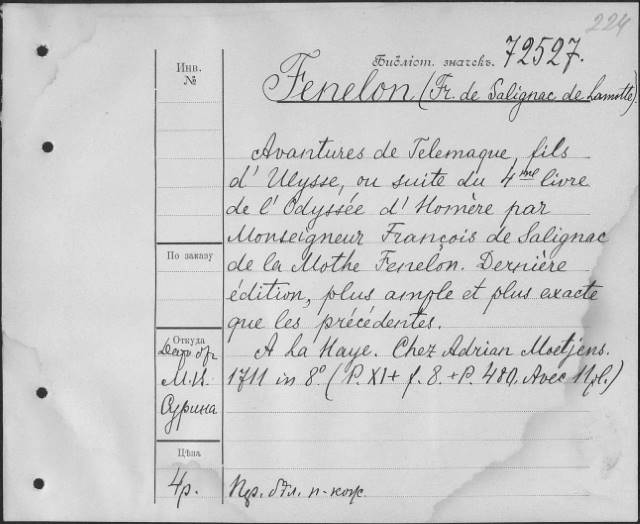 224
Инв.
№
Библіот. значекъ. 72527.
Fenelon (Fr. de Salignac de Lamotte)
Avantures de Telemaque, fils
d'Ulysse, ou suite du 4me livre
de l'Odyssée d'Homère par
Monseigneur François de Salignac
de la Mothe Fenelon. Dernière
édition, plus ample et plus exacte
que les précédentes.
A la Haye. Chez Adrian Moetjens.
1711 in 8º (P. XI + f. 8. + P. 480. Avec
По заказу
Откуда
М. И.
Сурина
Цѣна
4 р.